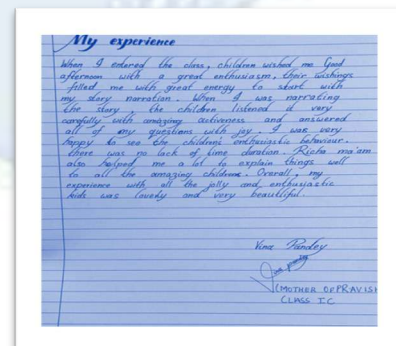 My experience
When I entered the class, children wished me Good
afternoon with a great enthusiasm, their wishings
filled me with great energy to start with
my story narration. When I was narrating
the story the children listened it very
carefully with amazing activeness and answered
all of my questions with joy. I was very
happy to see the children's enthusiastic behaviour.
there was no lack of time duration. Richa ma'am
also helped me a lot to explain things well
to all the amazing children. Overall, my
experience with all the jolly and enthusiastic
kids was lovely and very beautiful.
Vina Pandey
(MOTHER OF PRAVISH
CLASS I.C